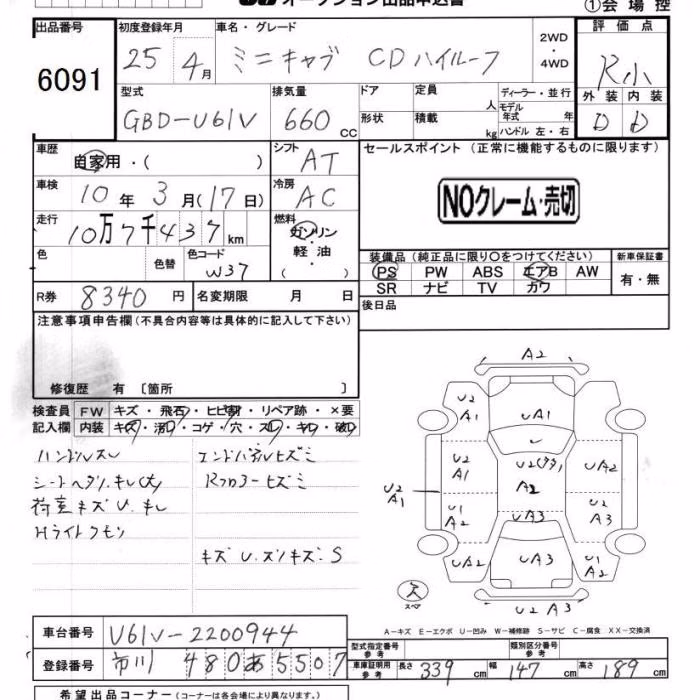 オークション出品申込書
①会場控
出品番号
6091
初度登録年月
25 4月
車名・グレード
ミニキャブ CD ハイルーフ
2WD
・
4WD
評価点
R小
外装 内装
D D
型式
GBD-U61V
排気量
660 CC
ドア
定員 人
形状
積載 kg
ディーラー・並行
モデル年式 年
ハンドル 左・右
車歴
自家用・( )
シフト
AT
車検
10年 3月(17日)
冷房
AC
走行
10万7千437km
燃料
ガソリン
軽油
( )
色
色替
色コード
W37
R券 8340 円
名変期限 月 日
セールスポイント (正常に機能するものに限ります)
NOクレーム・売切
装備品 (純正品に限り○をつけてください)
新車保証書
PS PW ABS エアB AW
SR ナビ TV カワ
有・無
後日品
注意事項申告欄(不具合内容等は具体的に記入して下さい)
修復歴 有〔箇所 〕
検査員記入欄
FW キズ・飛石・ヒビ割・リペア跡・×要
内装 キズ・汚・コゲ・穴・スレ・キレ・破
ハンドルスレ
シートヘタリ.キレ(大)
荷室キズ U.キレ
Hライトクモリ
エンドパネルヒズミ
Rフロアーヒズミ
キズ U.ズソキズ.S
A2
U2
A1
UA1
U2
A1
U2(タタ)
A2
UA2
U2
A1
U1
A2
U2
A3
UA3
UA2
UA3
U1
A2
U2 A3
スペア
A－キズ E－エクボ U－凹み W－補修跡 S－サビ C－腐食 XX－交換済
車台番号 U61V-2200944
登録番号 市川 480 あ 5507
型式指定番号 参考
類別区分番号 参考
車庫証明用 参考
長さ 339 cm 幅 147 cm 高さ 189 cm
希望出品コーナー (コーナーは各会場により異なります。)